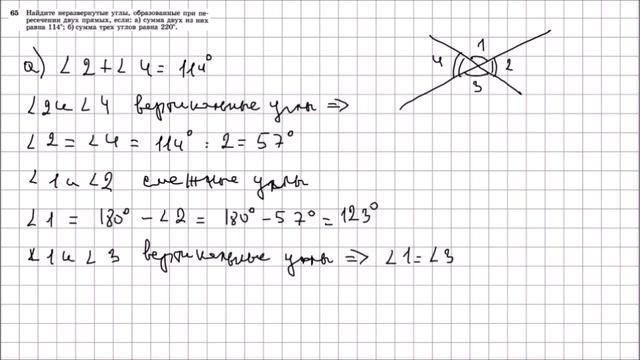 65 Найдите неразвернутые углы, образованные при пе-
ресечении двух прямых, если: а) сумма двух из них
равна 114°; б) сумма трех углов равна 220°.
а) ∠2 + ∠4 = 114°
∠2 и ∠4 вертикальные углы =>
∠2 = ∠4 = 114° : 2 = 57°
∠1 и ∠2 смежные углы
∠1 = 180° - ∠2 = 180° - 57° = 123°
∠1 и ∠3 вертикальные углы => ∠1 = ∠3
1
4 2
3